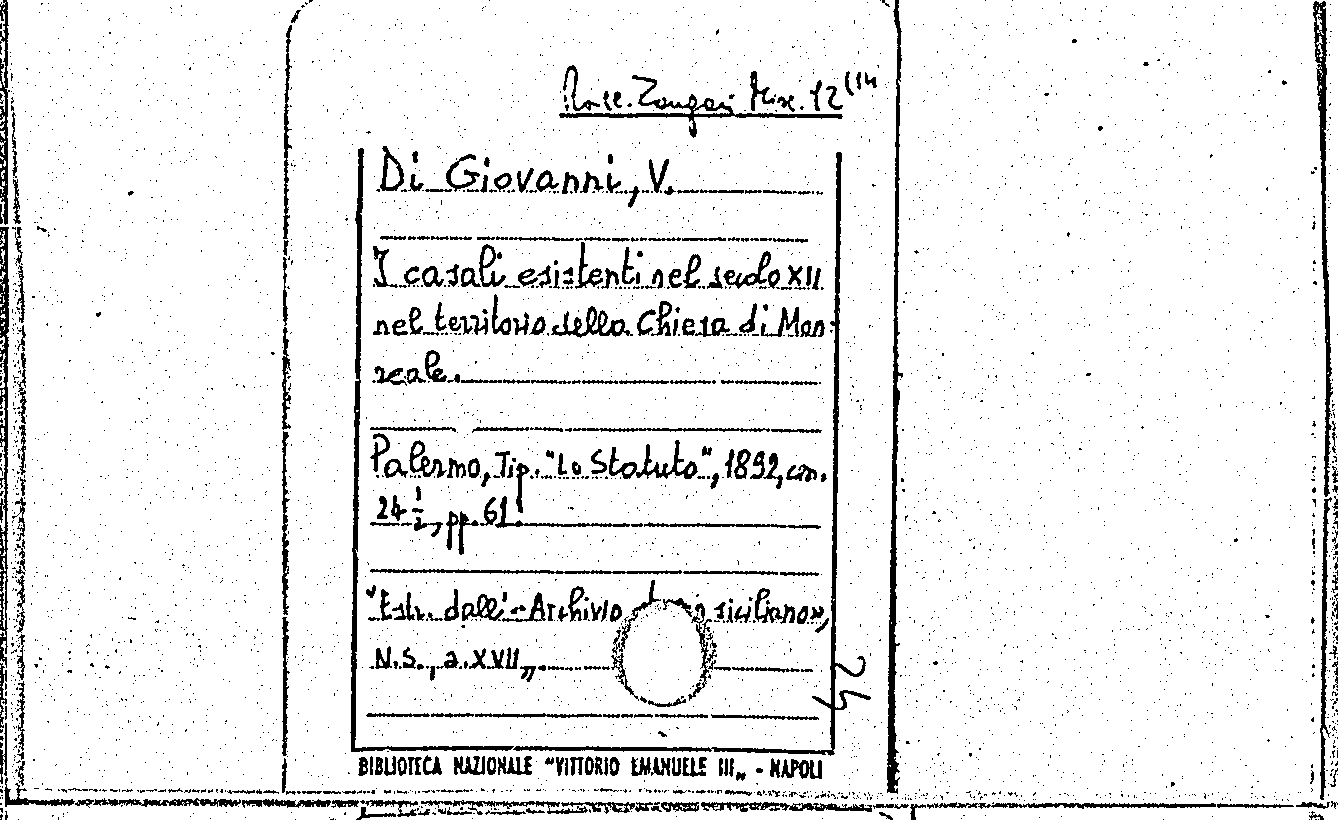 Racc. Zangari Misc. 12 (14
Di Giovanni, V.
I casali esistenti nel secolo XII
nel territorio della Chiesa di Mon-
reale.
Palermo, Tip. "Lo Statuto", 1892, cm.
24 1/2, pp. 61.
"Estr. dall' «Archivio siciliano»,
N.S., a. XVII„.
24
BIBLIOTECA NAZIONALE "VITTORIO EMANUELE III„ - NAPOLI